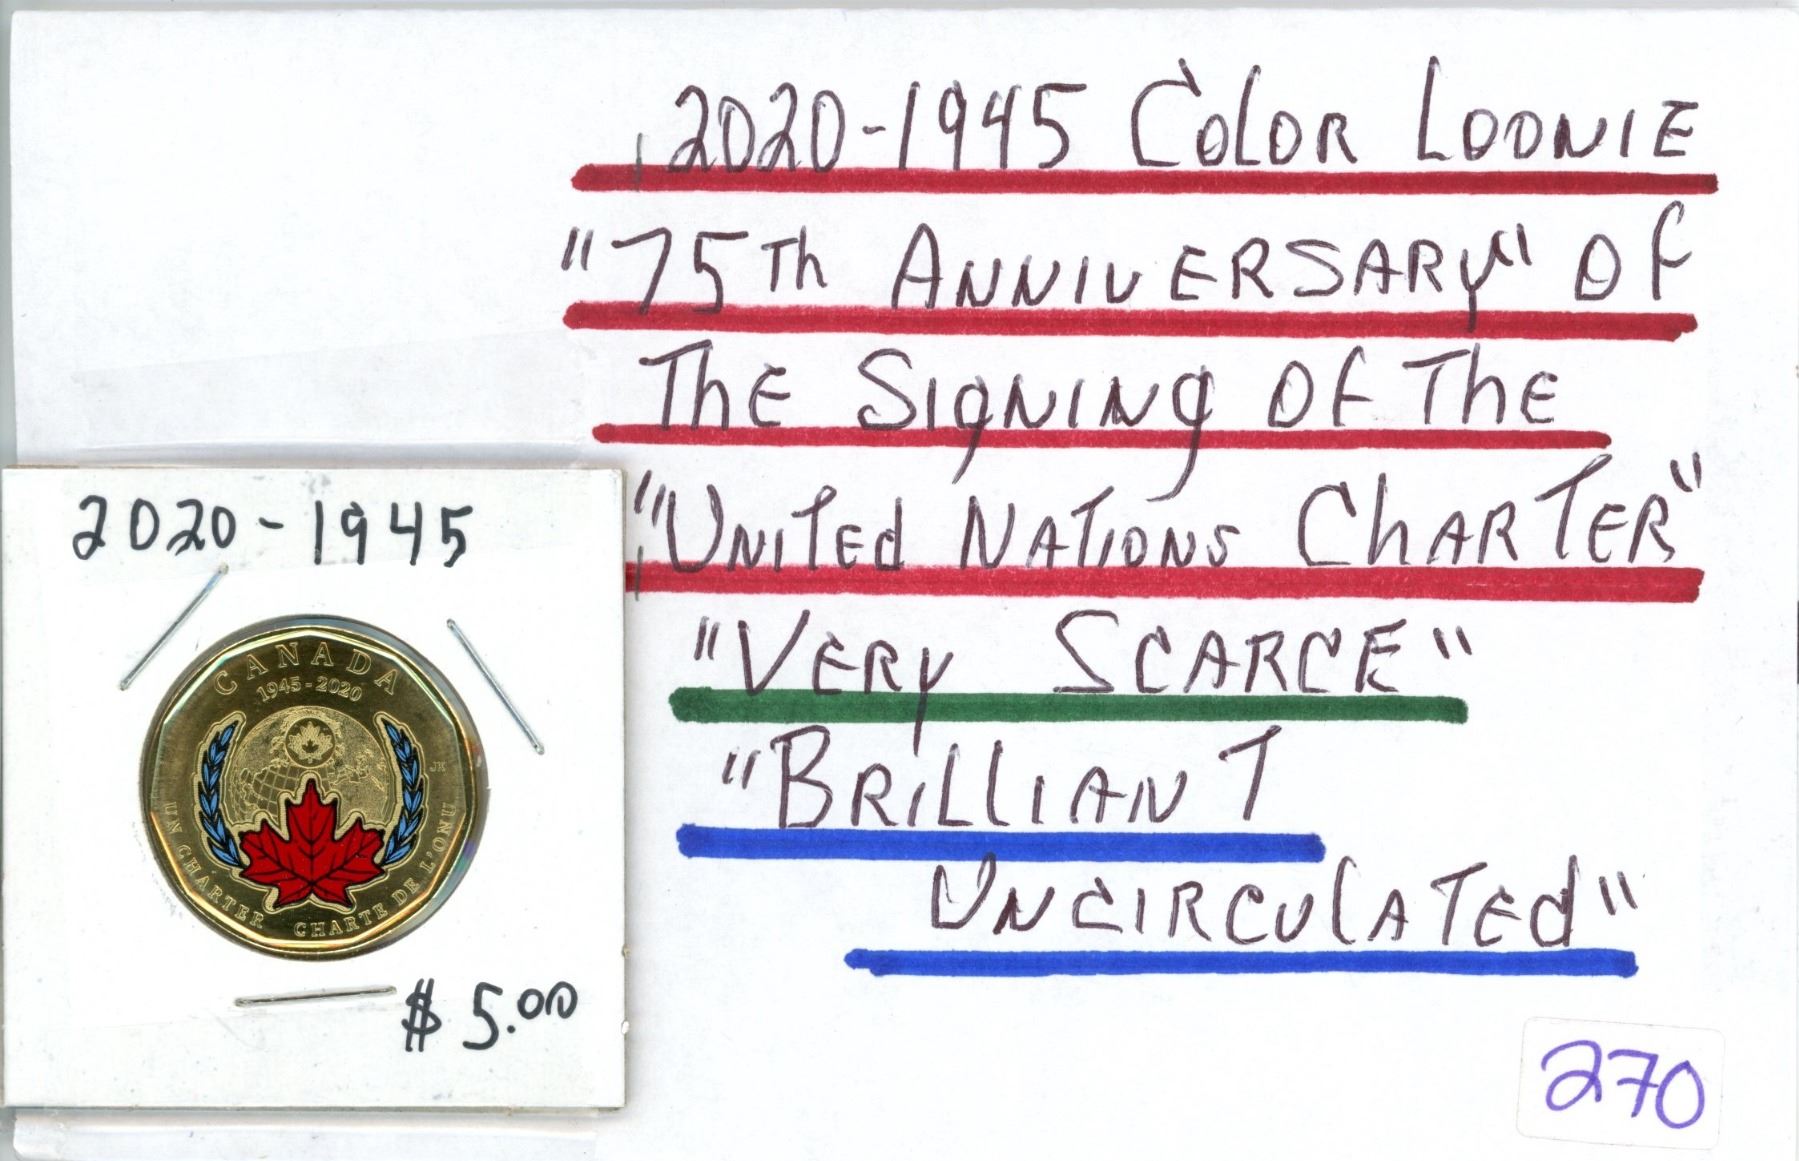 2020-1945 Color Loonie
"75th Anniversary" of
The Signing of The
"United Nations Charter"
"Very Scarce"
"Brilliant
Uncirculated"
2020-1945
CANADA
1945-2020
JK
UN CHARTER CHARTE DE L'ONU
$5.00
270